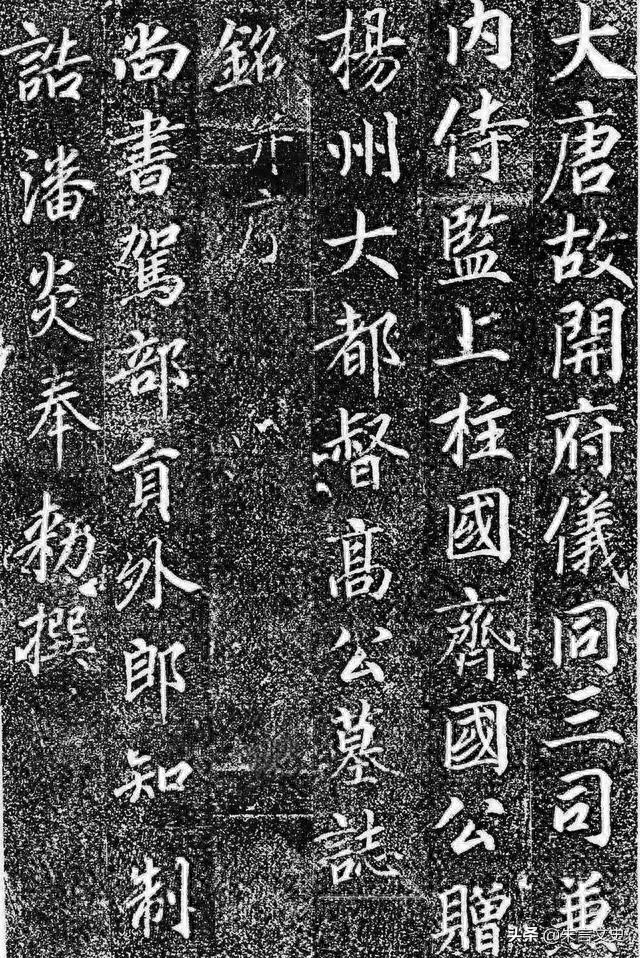 大唐故開府儀同三司兼
内侍監上柱國齊國公贈
楊州大都督高公墓誌
銘并序
尚書駕部員外郎知制
誥潘炎奉勑撰